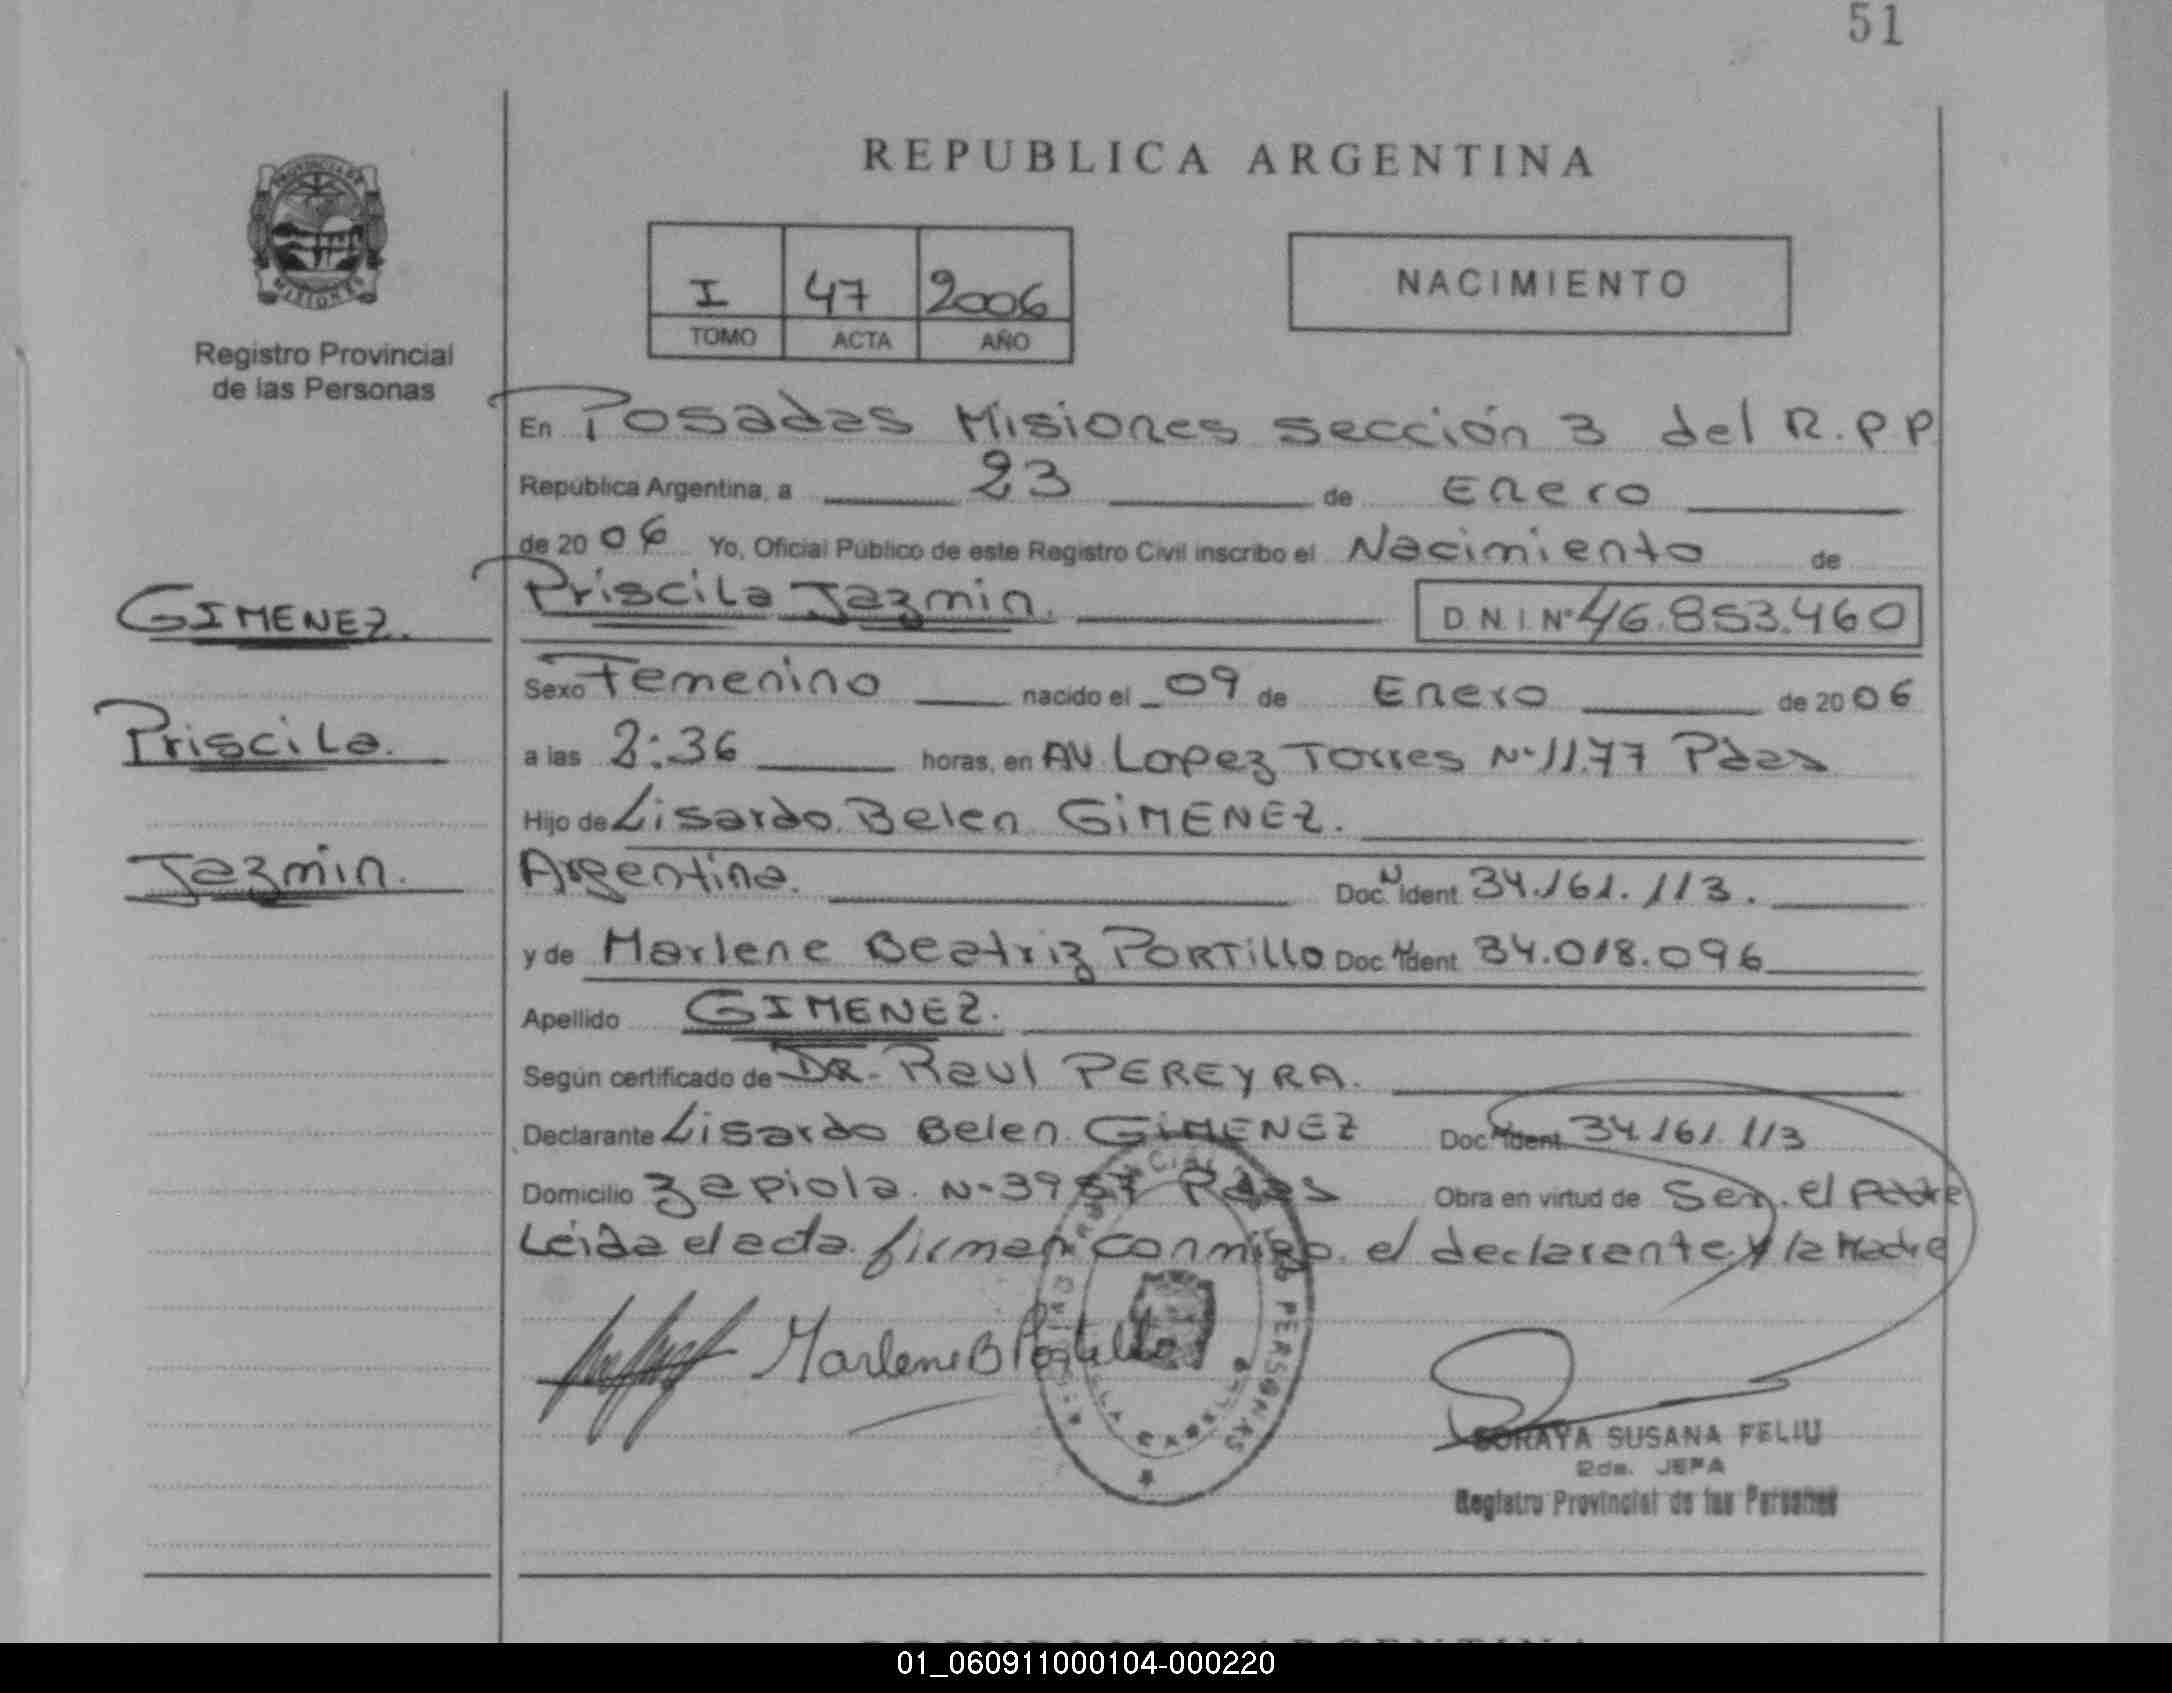 51
REPUBLICA ARGENTINA
I 47 2006
TOMO ACTA AÑO
NACIMIENTO
Registro Provincial
de las Personas
En Posadas Misiones sección 3 del R.P.P
República Argentina, a 23 de Enero
de 2006 Yo, Oficial Público de este Registro Civil inscribo el Nacimiento de
GIMENEZ. Priscila Jazmin. D.N.I. Nº 46.853.460
Sexo Femenino nacido el 09 de Enero de 2006
Priscila. a las 2:36 horas, en AV. Lopez Torres Nº 1177 Pdas
Hijo de Lisardo Belen GIMENEZ.
Jazmin. Argentina. Doc. N Ident 34.161.113.
y de Marlene Beatriz PORTILLO Doc. N Ident 34.018.096
Apellido GIMENEZ.
Según certificado de DR. Raul PEREYRA.
Declarante Lisardo Belen GIMENEZ Doc. N Ident. 34.161.113
Domicilio Zapiola Nº 3957 Pdas Obra en virtud de Ser. el Padre
Leida el acta. firman conmigo. el declarante y la Madre
Marlene B Portillo
PERSONAS
SORAYA SUSANA FELIU
2da. JEFA
Registro Provincial de las Personas
01_060911000104-000220